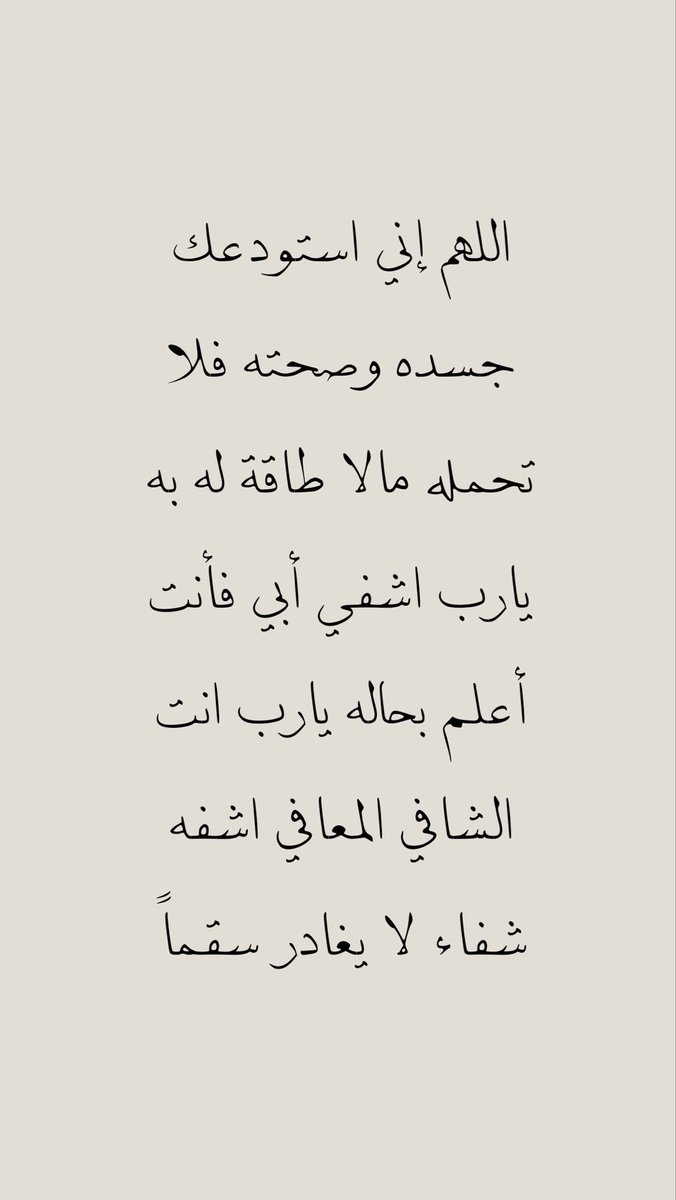 اللهم إني استودعك
جسده وصحته فلا
تحمله مالا طاقة له به
يارب اشفي أبي فأنت
أعلم بحاله يارب انت
الشافي المعافي اشفه
شفاء لا يغادر سقماً